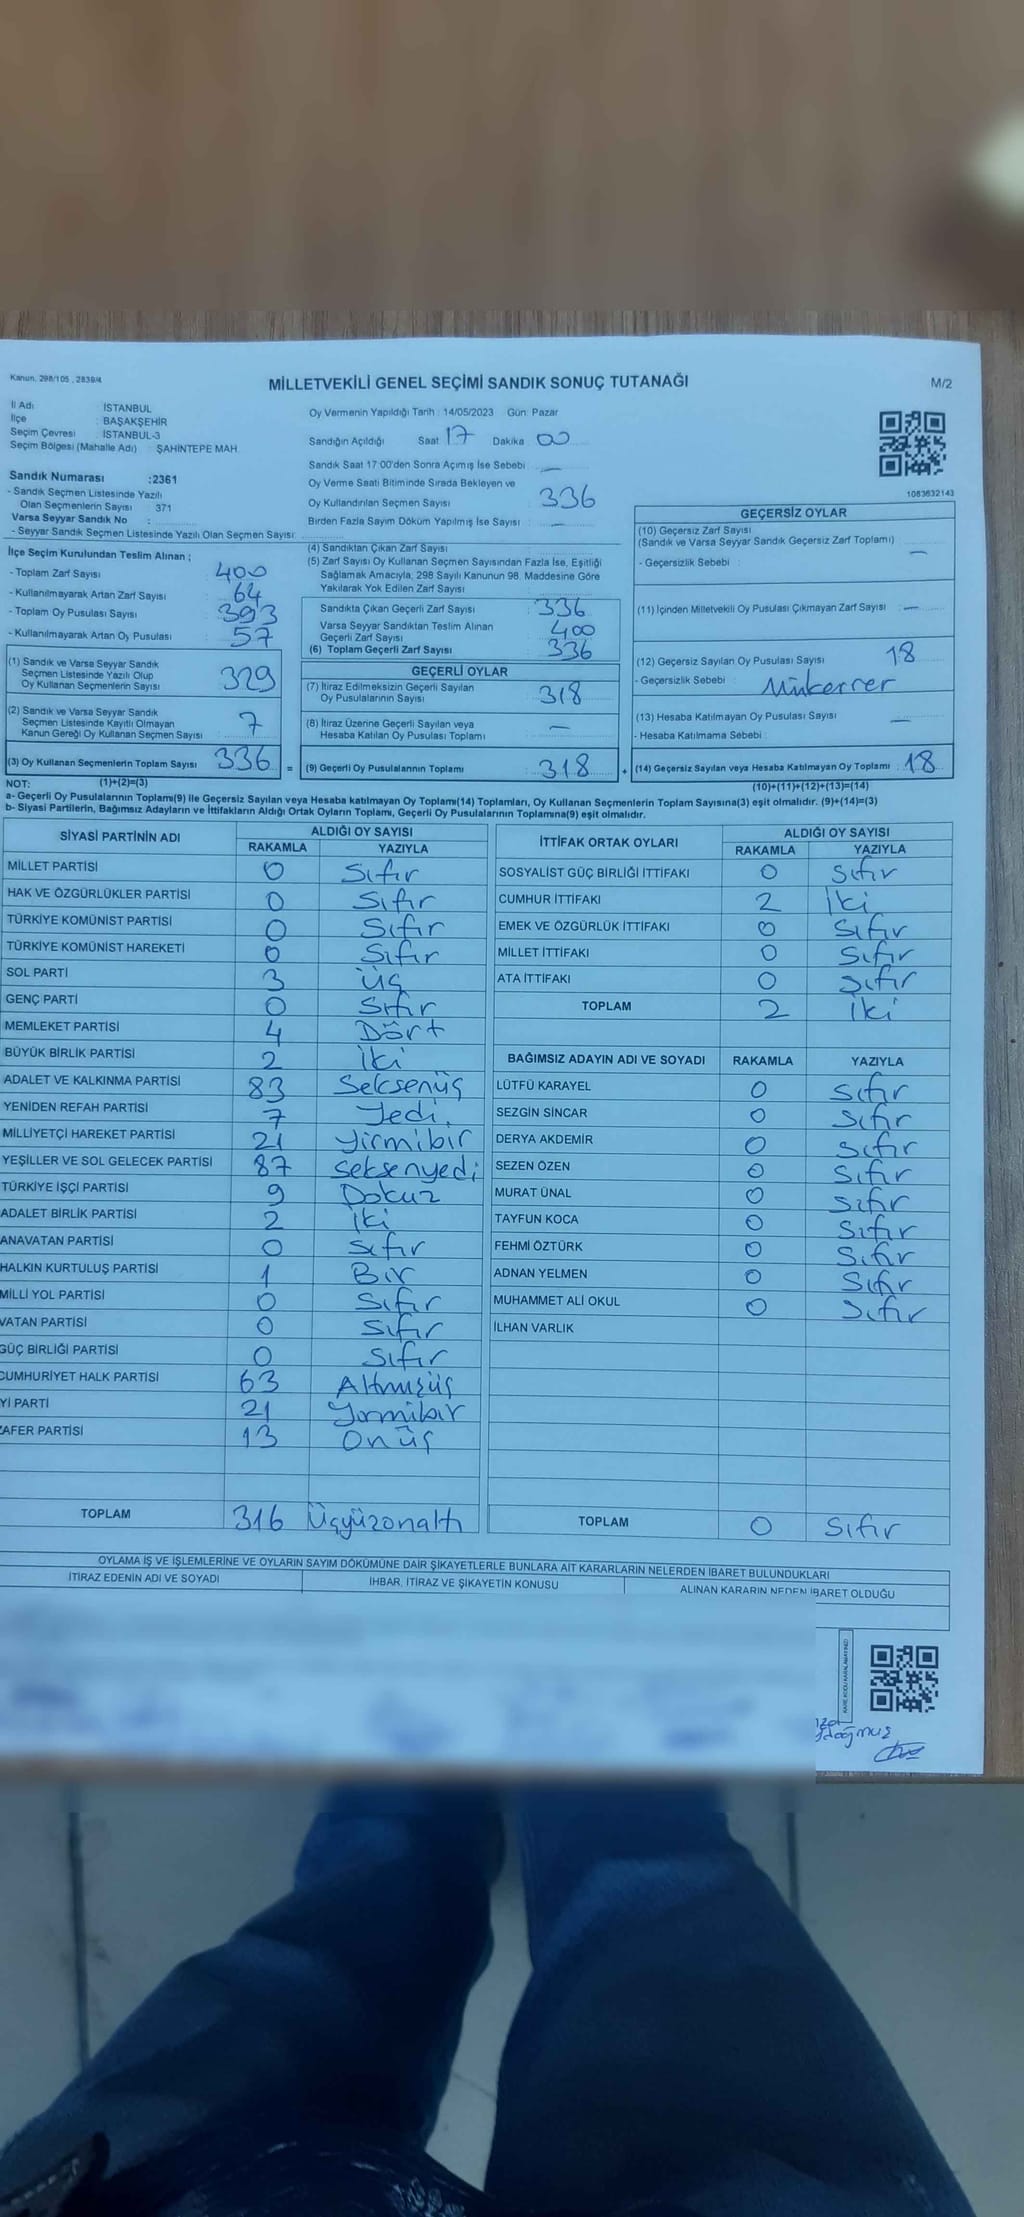 Kanun, 298/105 , 2839/4
MİLLETVEKİLİ GENEL SEÇİMİ SANDIK SONUÇ TUTANAĞI
M/2
İl Adı : İSTANBUL
İlçe : BAŞAKŞEHİR
Seçim Çevresi : İSTANBUL-3
Seçim Bölgesi (Mahalle Adı) : ŞAHİNTEPE MAH.
Sandık Numarası :2361
- Sandık Seçmen Listesinde Yazılı
Olan Seçmenlerin Sayısı : 371
Varsa Seyyar Sandık No :
- Seyyar Sandık Seçmen Listesinde Yazılı Olan Seçmen Sayısı:
Oy Vermenin Yapıldığı Tarih : 14/05/2023 Gün: Pazar
Sandığın Açıldığı Saat 17 Dakika 00
Sandık Saat 17:00'den Sonra Açımış İse Sebebi : —
Oy Verme Saati Bitiminde Sırada Bekleyen ve
Oy Kullandırılan Seçmen Sayısı : 336
Birden Fazla Sayım Döküm Yapılmış İse Sayısı : —
1083632143
İlçe Seçim Kurulundan Teslim Alınan ;
- Toplam Zarf Sayısı : 400
- Kullanılmayarak Artan Zarf Sayısı : 64
- Toplam Oy Pusulası Sayısı : 393
- Kullanılmayarak Artan Oy Pusulası : 57
(1) Sandık ve Varsa Seyyar Sandık
Seçmen Listesinde Yazılı Olup
Oy Kullanan Seçmenlerin Sayısı : 329
(2) Sandık ve Varsa Seyyar Sandık
Seçmen Listesinde Kayıtlı Olmayan
Kanun Gereği Oy Kullanan Seçmen Sayısı : 7
(3) Oy Kullanan Seçmenlerin Toplam Sayısı : 336 =
(4) Sandıktan Çıkan Zarf Sayısı :
(5) Zarf Sayısı Oy Kullanan Seçmen Sayısından Fazla İse, Eşitliği
Sağlamak Amacıyla, 298 Sayılı Kanunun 98. Maddesine Göre
Yakılarak Yok Edilen Zarf Sayısı :
Sandıkta Çıkan Geçerli Zarf Sayısı : 336
Varsa Seyyar Sandıktan Teslim Alınan
Geçerli Zarf Sayısı : 400
(6) Toplam Geçerli Zarf Sayısı : 336
GEÇERLİ OYLAR
(7) İtiraz Edilmeksizin Geçerli Sayılan
Oy Pusulalarının Sayısı : 318
(8) İtiraz Üzerine Geçerli Sayılan veya
Hesaba Katılan Oy Pusulası Toplamı : —
(9) Geçerli Oy Pusulalarının Toplamı : 318 +
GEÇERSİZ OYLAR
(10) Geçersiz Zarf Sayısı
(Sandık ve Varsa Seyyar Sandık Geçersiz Zarf Toplamı) : —
- Geçersizlik Sebebi :
(11) İçinden Milletvekili Oy Pusulası Çıkmayan Zarf Sayısı : —
(12) Geçersiz Sayılan Oy Pusulası Sayısı : 18
- Geçersizlik Sebebi : Mükerrer
(13) Hesaba Katılmayan Oy Pusulası Sayısı : —
- Hesaba Katılmama Sebebi :
(14) Geçersiz Sayılan veya Hesaba Katılmayan Oy Toplamı : 18
NOT: (1)+(2)=(3)
(10)+(11)+(12)+(13)=(14)
a- Geçerli Oy Pusulalarının Toplamı(9) ile Geçersiz Sayılan veya Hesaba katılmayan Oy Toplamı(14) Toplamları, Oy Kullanan Seçmenlerin Toplam Sayısına(3) eşit olmalıdır. (9)+(14)=(3)
b- Siyasi Partilerin, Bağımsız Adayların ve İttifakların Aldığı Ortak Oyların Toplamı, Geçerli Oy Pusulalarının Toplamına(9) eşit olmalıdır.
SİYASİ PARTİNİN ADI ALDIĞI OY SAYISI
RAKAMLA YAZIYLA
MİLLET PARTİSİ 0 Sıfır
HAK VE ÖZGÜRLÜKLER PARTİSİ 0 Sıfır
TÜRKİYE KOMÜNİST PARTİSİ 0 Sıfır
TÜRKİYE KOMÜNİST HAREKETİ 0 Sıfır
SOL PARTİ 3 üç
GENÇ PARTİ 0 Sıfır
MEMLEKET PARTİSİ 4 Dört
BÜYÜK BİRLİK PARTİSİ 2 İki
ADALET VE KALKINMA PARTİSİ 83 Seksenüç
YENİDEN REFAH PARTİSİ 7 Yedi
MİLLİYETÇİ HAREKET PARTİSİ 21 Yirmibir
YEŞİLLER VE SOL GELECEK PARTİSİ 87 Seksenyedi
TÜRKİYE İŞÇİ PARTİSİ 9 Dokuz
ADALET BİRLİK PARTİSİ 2 İki
ANAVATAN PARTİSİ 0 Sıfır
HALKIN KURTULUŞ PARTİSİ 1 Bir
MİLLİ YOL PARTİSİ 0 Sıfır
VATAN PARTİSİ 0 Sıfır
GÜÇ BİRLİĞİ PARTİSİ 0 Sıfır
CUMHURİYET HALK PARTİSİ 63 Altmışüç
Yİ PARTİ 21 Yirmibir
ZAFER PARTİSİ 13 Onüç
TOPLAM 316 Üçyüzonaltı
İTTİFAK ORTAK OYLARI ALDIĞI OY SAYISI
RAKAMLA YAZIYLA
SOSYALİST GÜÇ BİRLİĞİ İTTİFAKI 0 Sıfır
CUMHUR İTTİFAKI 2 İki
EMEK VE ÖZGÜRLÜK İTTİFAKI 0 Sıfır
MİLLET İTTİFAKI 0 Sıfır
ATA İTTİFAKI 0 Sıfır
TOPLAM 2 İki
BAĞIMSIZ ADAYIN ADI VE SOYADI RAKAMLA YAZIYLA
LÜTFÜ KARAYEL 0 Sıfır
SEZGİN SİNCAR 0 Sıfır
DERYA AKDEMİR 0 Sıfır
SEZEN ÖZEN 0 Sıfır
MURAT ÜNAL 0 Sıfır
TAYFUN KOCA 0 Sıfır
FEHMİ ÖZTÜRK 0 Sıfır
ADNAN YELMEN 0 Sıfır
MUHAMMET ALİ OKUL 0 Sıfır
İLHAN VARLIK
TOPLAM 0 Sıfır
OYLAMA İŞ VE İŞLEMLERİNE VE OYLARIN SAYIM DÖKÜMÜNE DAİR ŞİKAYETLERLE BUNLARA AİT KARARLARIN NELERDEN İBARET BULUNDUKLARI
İTİRAZ EDENİN ADI VE SOYADI İHBAR, İTİRAZ VE ŞİKAYETİN KONUSU ALINAN KARARIN NEDEN İBARET OLDUĞU
KARE KODU KARALAMAYINIZ!